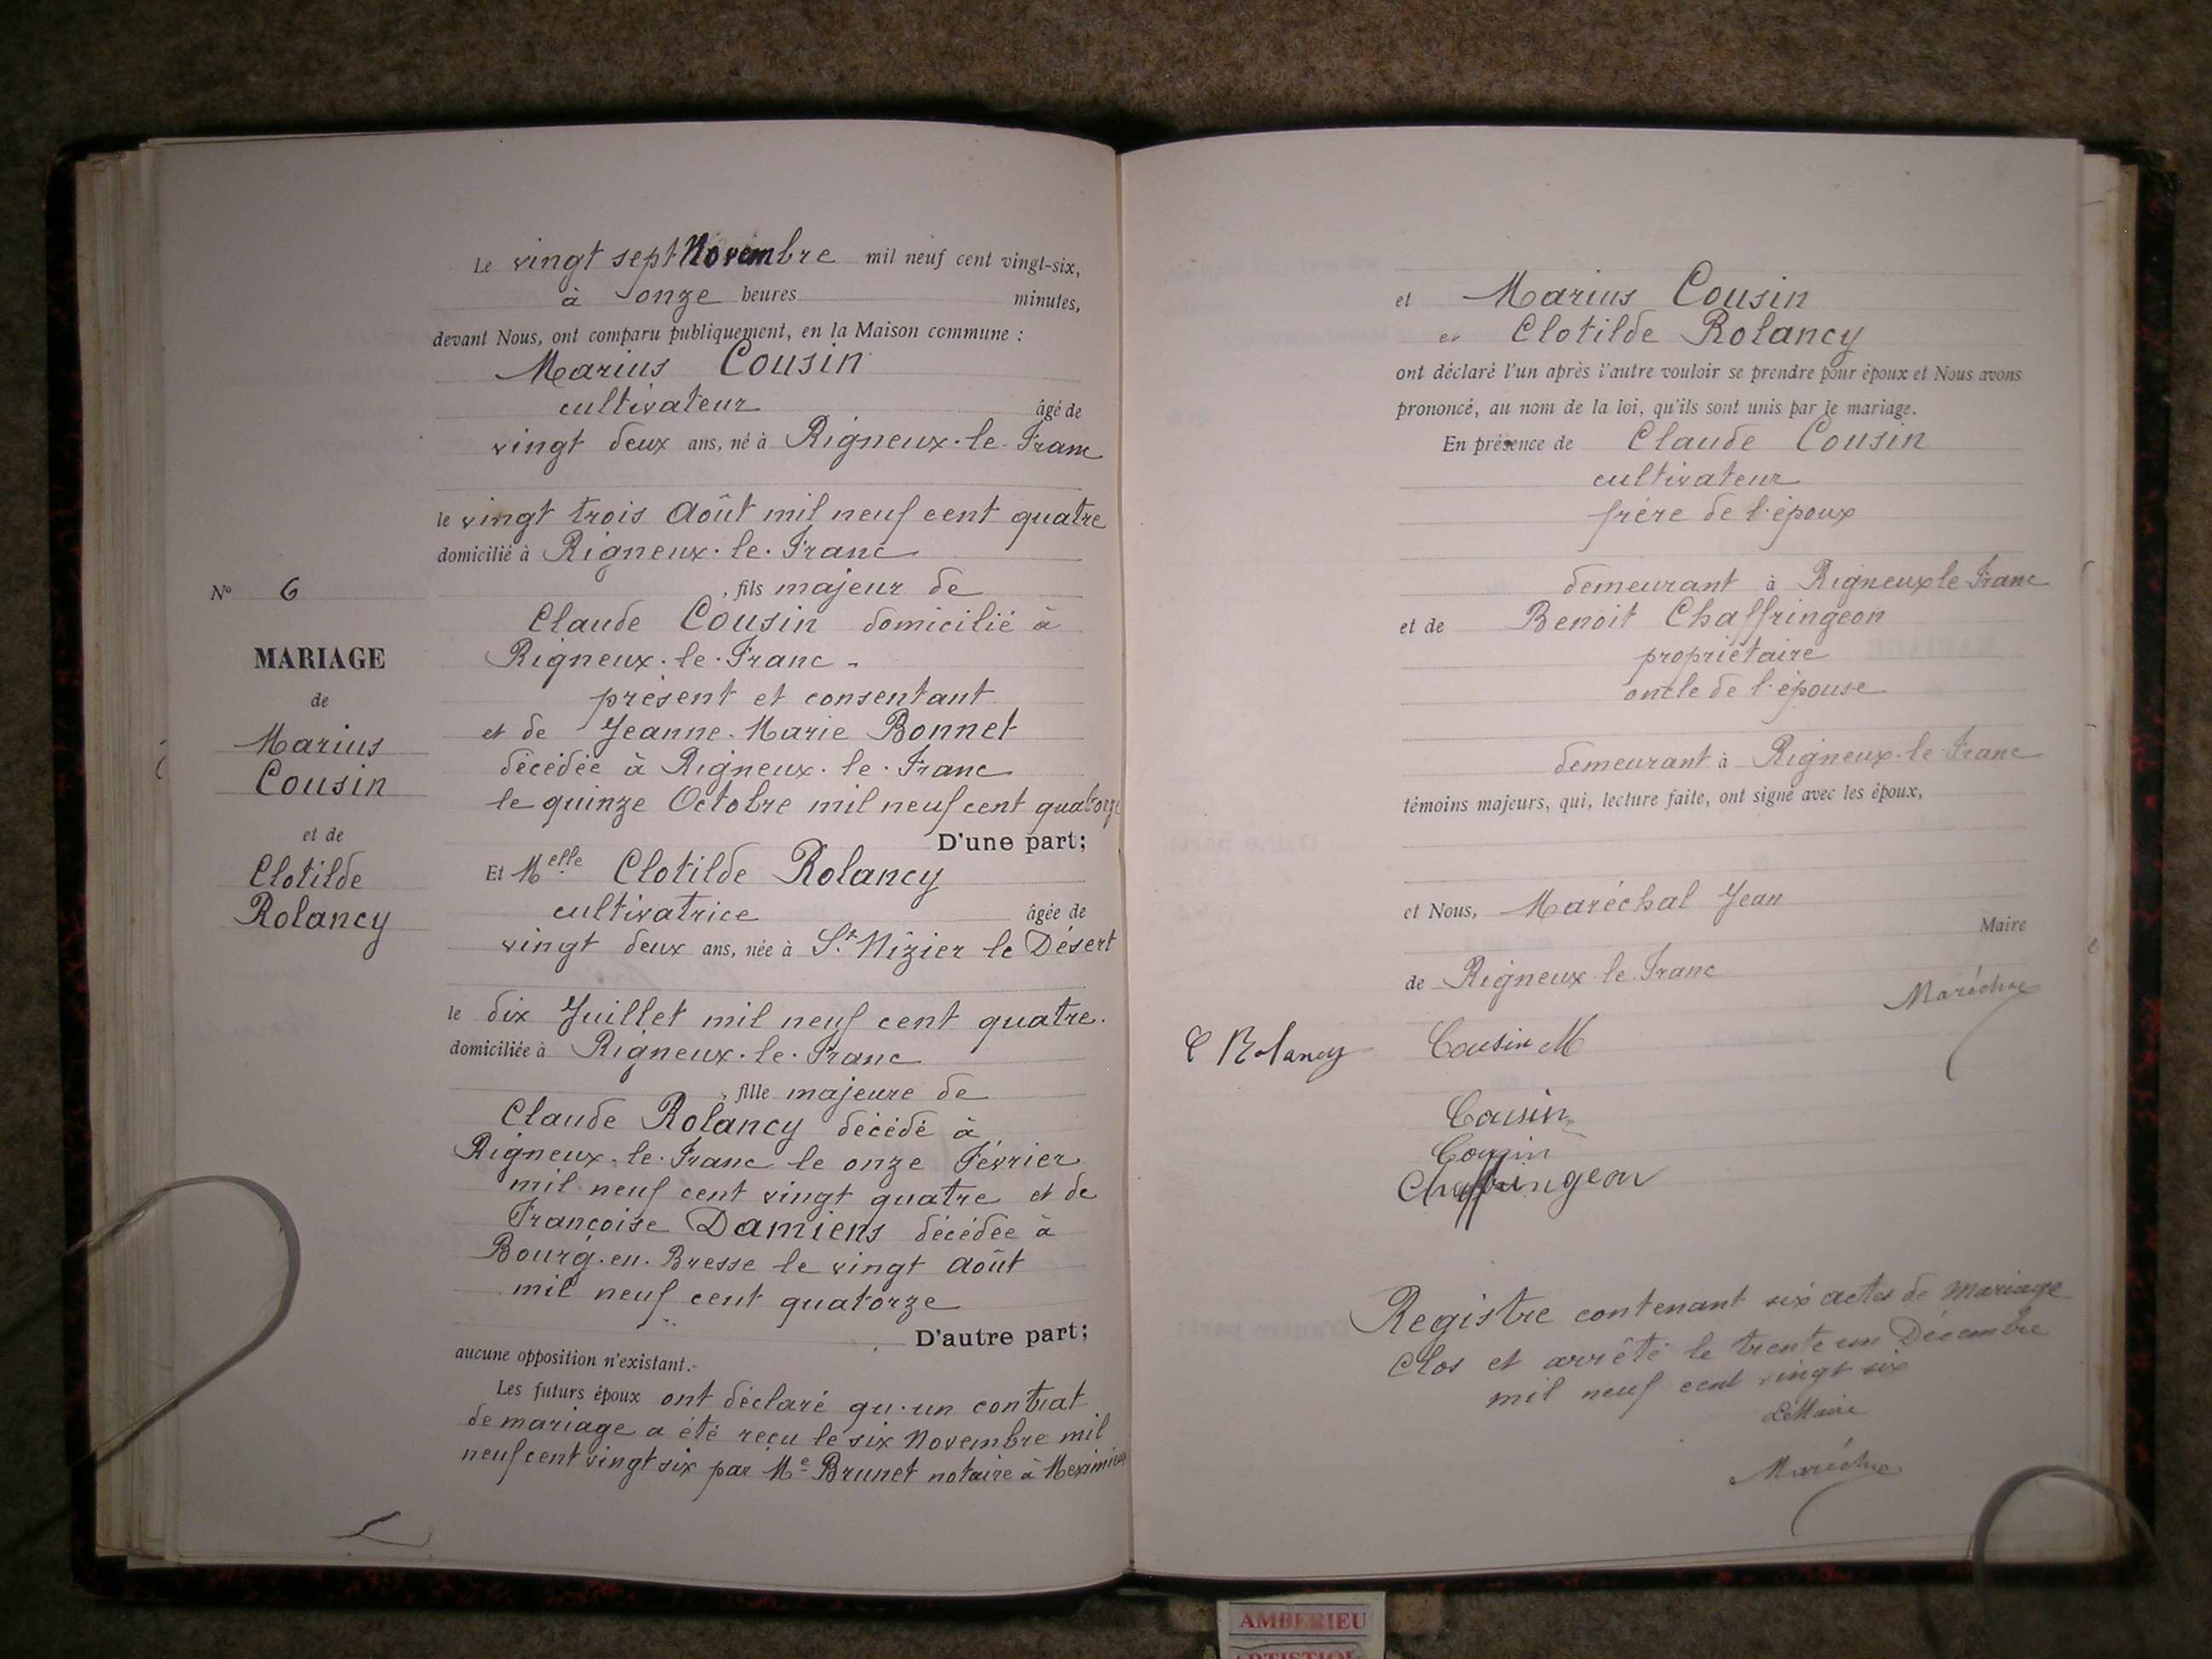 Le vingt sept Novembre mil neuf cent vingt-six,
à onze heures minutes,
devant Nous, ont comparu publiquement, en la Maison commune :
Marius Cousin
cultivateur âgé de
vingt deux ans, né à Rigneux-le-Franc
le vingt trois Août mil neuf cent quatre
domicilié à Rigneux-le-Franc
, fils majeur de
Claude Cousin domicilié à
Rigneux-le-Franc -
présent et consentant
et de Jeanne-Marie Bonnet
décédée à Rigneux-le-Franc
le quinze Octobre mil neuf cent quatorze
D'une part;
Et Melle Clotilde Rolancy
cultivatrice âgée de
vingt deux ans, née à St Nizier le Désert
le dix Juillet mil neuf cent quatre.
domiciliée à Rigneux-le-Franc
, fille majeure de
Claude Rolancy décédé à
Rigneux-le-Franc le onze Février
mil neuf cent vingt quatre et de
Françoise Damiens décédée à
Bourg-en-Bresse le vingt Août
mil neuf cent quatorze
D'autre part;
aucune opposition n'existant.-
Les futurs époux ont déclaré qu'un contrat
de mariage a été reçu le six Novembre mil
neuf cent vingt six par Me Brunet notaire à Meximieux
No 6
MARIAGE
de
Marius
Cousin
et de
Clotilde
Rolancy
et Marius Cousin
et Clotilde Rolancy
ont déclaré l'un après l'autre vouloir se prendre pour époux et Nous avons
prononcé, au nom de la loi, qu'ils sont unis par le mariage.
En présence de Claude Cousin
cultivateur
frère de l'époux
demeurant à Rigneux le Franc
et de Benoit Chaffringeon
propriétaire
oncle de l'épouse
demeurant à Rigneux-le-Franc
témoins majeurs, qui, lecture faite, ont signé avec les époux,
et Nous, Maréchal Jean
Maire
de Rigneux-le-Franc
Maréchal
C Rolancy Cousin M
Cousin
Cousin
Chaffringeon
Registre contenant six actes de mariage
Clos et arrêté le trente un Décembre
mil neuf cent vingt six
Le Maire
Maréchal
AMBERIEU